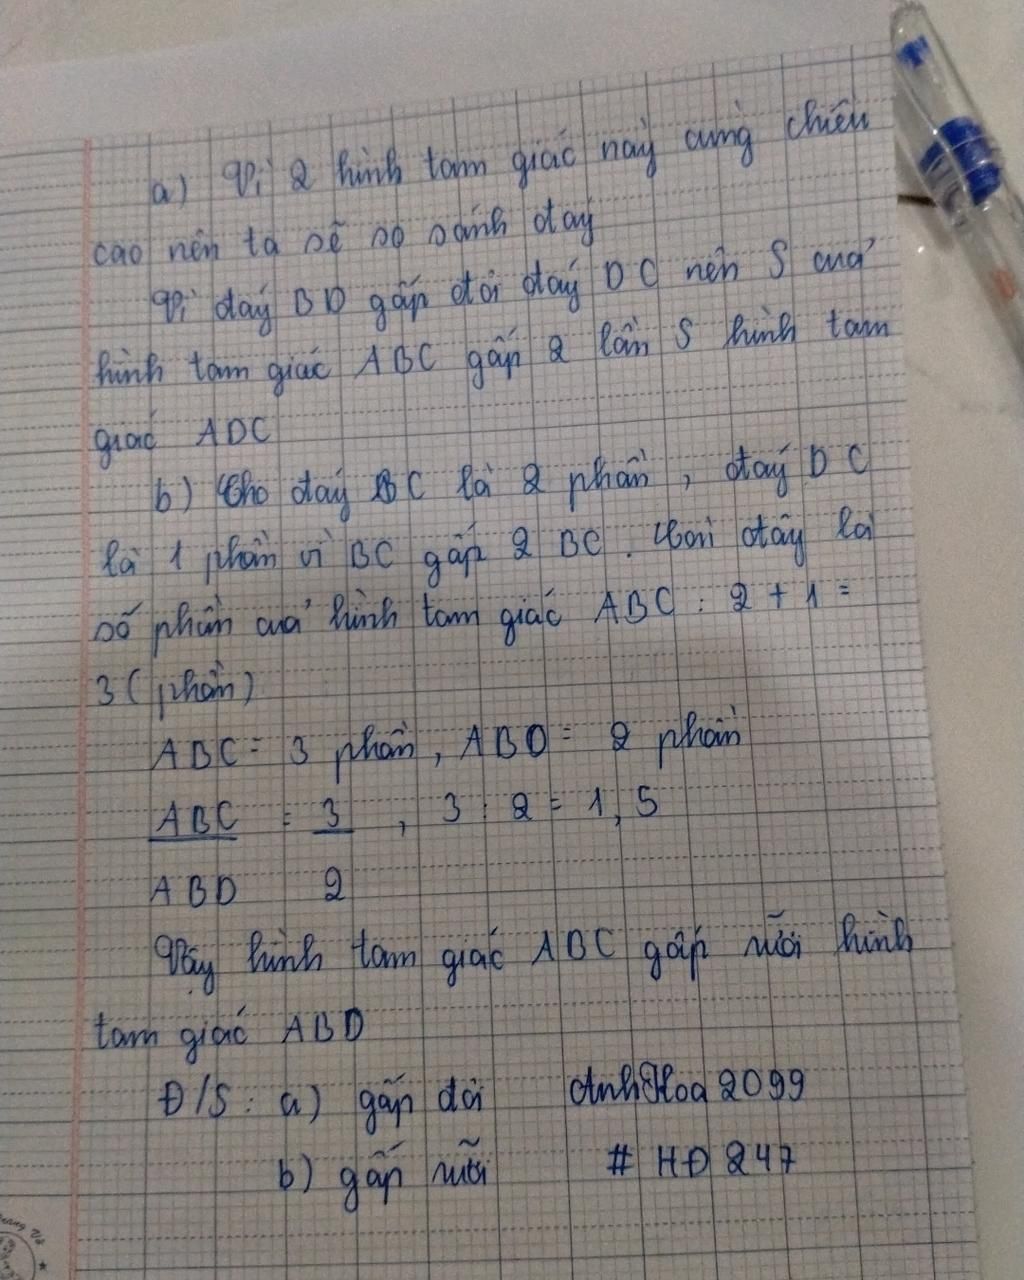 a) Vì 2 hình tam giác này cùng chiều
cao nên ta sẽ so sánh đáy
Vì đáy BD gấp đôi đáy DC nên S của
hình tam giác ABC gấp 2 lần S hình tam
giác ADC
b) Cho đáy BC là 2 phần, đáy DC
là 1 phần vì BC gấp 2 BC. đây là
số phần của hình tam giác ABC: 2 + 1 =
3 (phần)
ABC = 3 phần, ABD = 2 phần
ABC = 3, 3 : 2 = 1,5
ABD 2
Vậy hình tam giác ABC gấp rưỡi hình
tam giác ABD
Đ/S: a) gấp đôi AnhHoa2099
b) gấp rưỡi # HĐ247